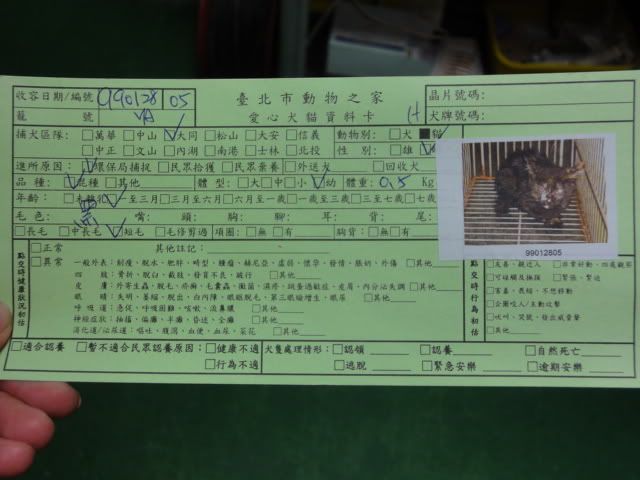 收容日期/編號 990128 05 臺北市動物之家 晶片號碼:
籠 號 VA 愛心犬貓資料卡 H 犬牌號碼:
捕犬區隊: □萬華 □中山 ☑大同 □松山 □大安 □信義 動物別: □犬 ■貓
□中正 □文山 □內湖 □南港 □士林 □北投 性 別: □雄
進所原因: ☑環保局捕捉 □民眾拾獲 □民眾棄養 □外送犬 □回收犬
品 種: ☑混種 □其他 體 型: □大 □中 □小 ☑幼 體重: 0.5 Kg
年齡: □至三月 □三月至六月 □六月至一歲 □一歲至三歲 □三至七歲
毛 色: 黑 嘴: 頭: 胸: 腳: 耳: 背: 尾:
□長毛 □中長毛 ☑短毛 □毛修剪過 項圈: □無 □有 胸背: □無 □有
99012805
點交時健康狀況初估
□正常 其他註記:
□異常 一般外表: 削瘦、脫水、肥胖、畸型、腫瘤、赫尼亞、虛弱、懷孕、發情、脹奶、外傷 □其他
四 肢: 骨折、脫臼、截肢、發育不良、跛行 □其他
皮 膚: 外寄生蟲、脫毛、疥癬、毛囊蟲、黴菌、潰瘍、跳蚤過敏症、皮屑、內分泌失調 □其他
眼 睛: 失明、萎縮、脫出、白內障、眼瞼脫毛、第三眼瞼增生、眼屎 □其他
呼吸道: 急促、呼吸困難、咳嗽、流鼻膿 □其他
神經症狀: 抽搐、偏癱、半癱、昏迷、全癱 □其他
消化道/泌尿道: 嘔吐、腹瀉、血便、血尿、菜花 □其他
點交時行為初估
□友善、親近人 □非常好動、四處觀察
□可碰觸及撫摸 □緊張、緊迫
□害羞、畏縮、不想移動
□企圖咬人/主動攻擊
□吠叫、哭號、發出威脅聲
□其他
□適合認養 □暫不適合民眾認養原因: □健康不適 犬隻處理情形: □認領 □認養 □自然死亡
□行為不適 □逃脫 □緊急安樂 □逾期安樂